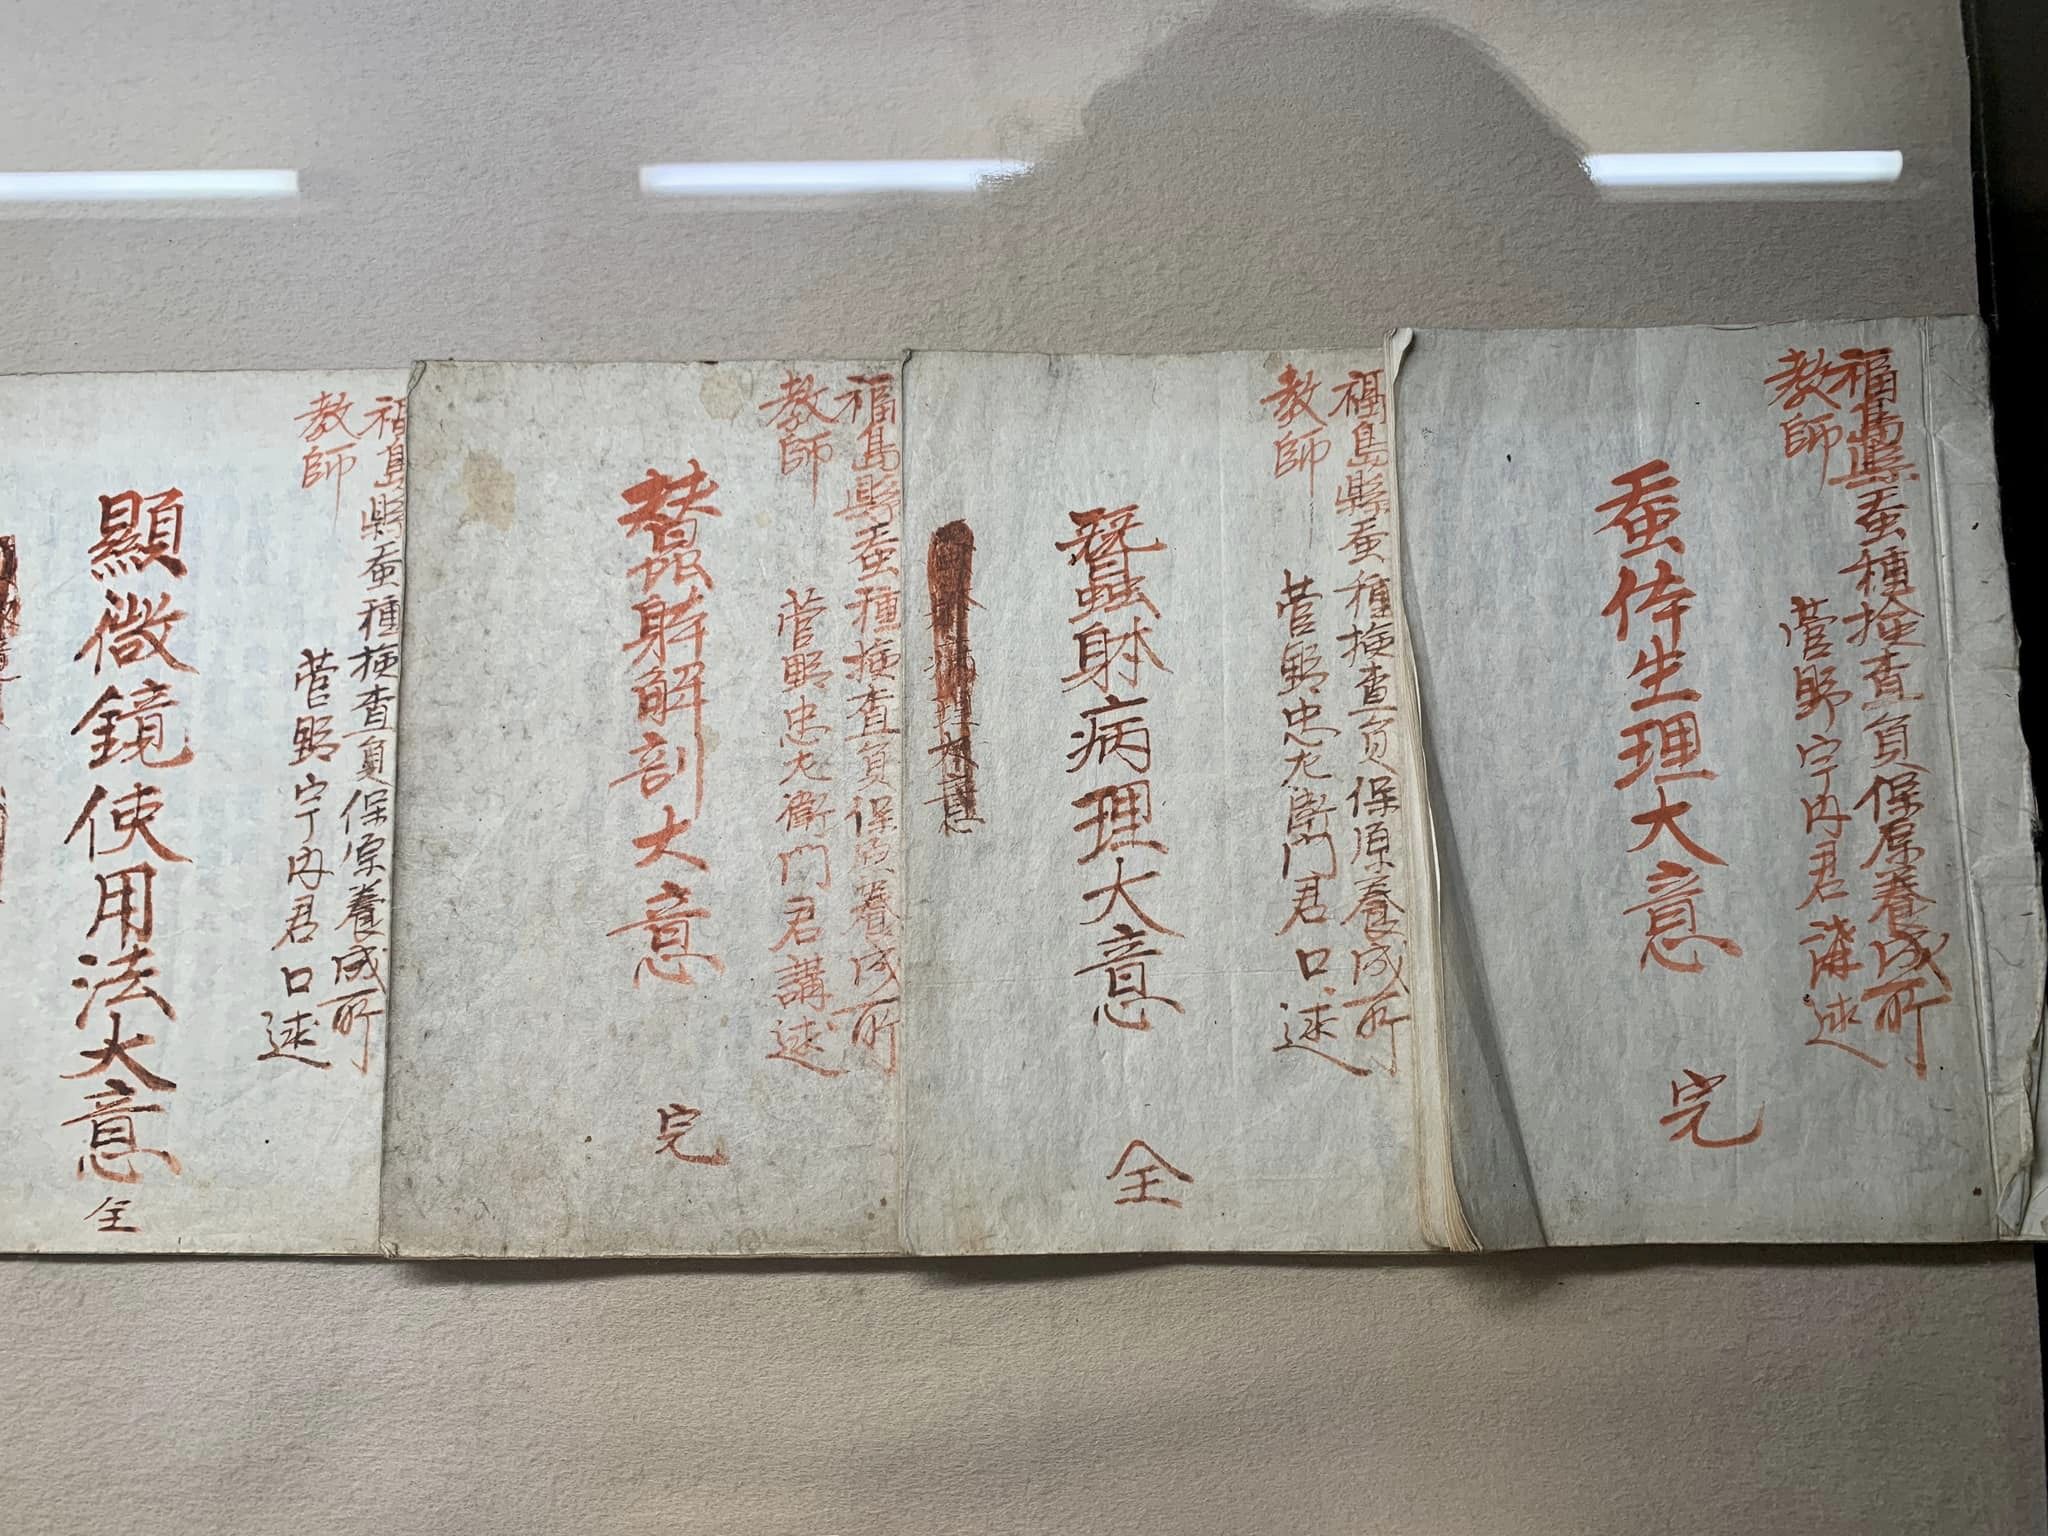 福島縣蚕種検査員保原養成所
教師　菅野宇内君講述
蚕体生理大意
完
福島縣蚕種検査員保原養成所
教師　菅野忠左衛門君口述
蠶躰病理大意
全
福島縣蚕種検査員保原養成所
教師　菅野忠左衛門君講述
蠶躰解剖大意
完
福島縣蚕種検査員保原養成所
教師　菅野宇内君口述
顯微鏡使用法大意
全